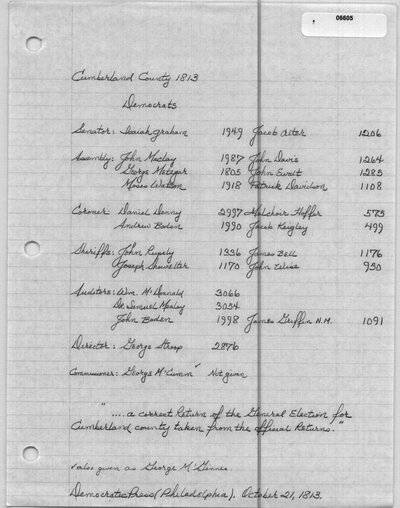 06605
Cumberland County 1813
Democrats
Senator: Isaiah Graham 1949 Jacob Alter 1206
Assembly: John Maclay 1987 John Davis 1264
George Metzger 1805 John Ewalt 1285
Moses Watson 1918 Patrick Davidson 1108
Coroner: Daniel Denny 2997 Melchoir Hoffer 575
Andrew Boden 1990 Jacob Keigley 499
Sheriffs: John Rupely 1336 James Bell 1176
Joseph Showalter 1170 John Wise 950
Auditors: Wm. McDonnald 3066
Dr. Samuel Mealey 3054
John Boden 1998 James Griffin N.M. 1091
Director: George Stroop 2876
Commissioner: George McCunn✓ Not given
"....a correct Return of the General Election for
Cumberland county taken from the official Returns."
✓ also given as George McGinnes
Democratic Press (Philadelphia). October 21, 1813.